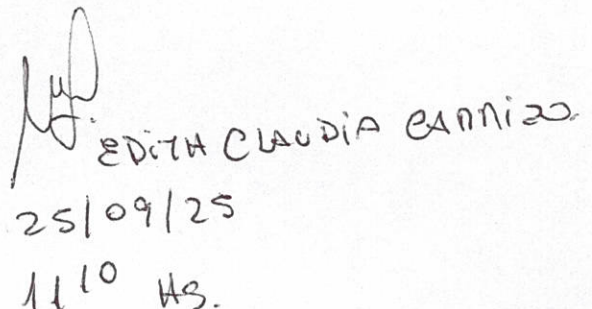 EDITH CLAUDIA CARRIZO.
25/09/25
11 10 HS.